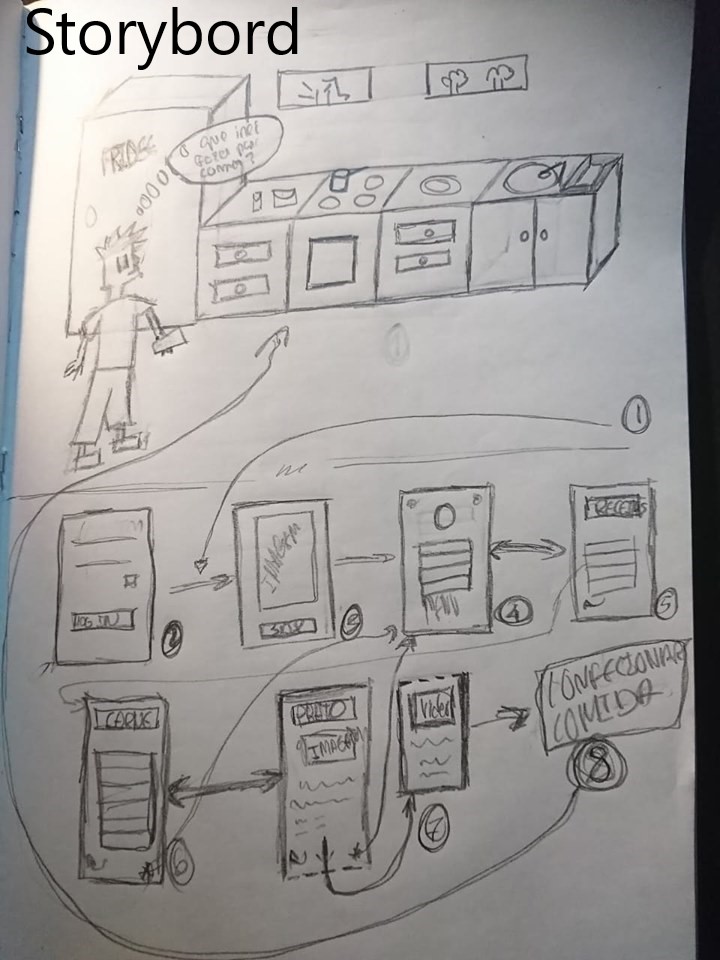 Storybord
FRIDGE
O que irei
fazer para
comer?
1
1
LOG IN
2
IMAGEM
SKIP
3
MENU
4
RECEITAS
5
CARNE
6
PRATO
IMAGEM
Video
7
CONFECIONAR
COMIDA
8